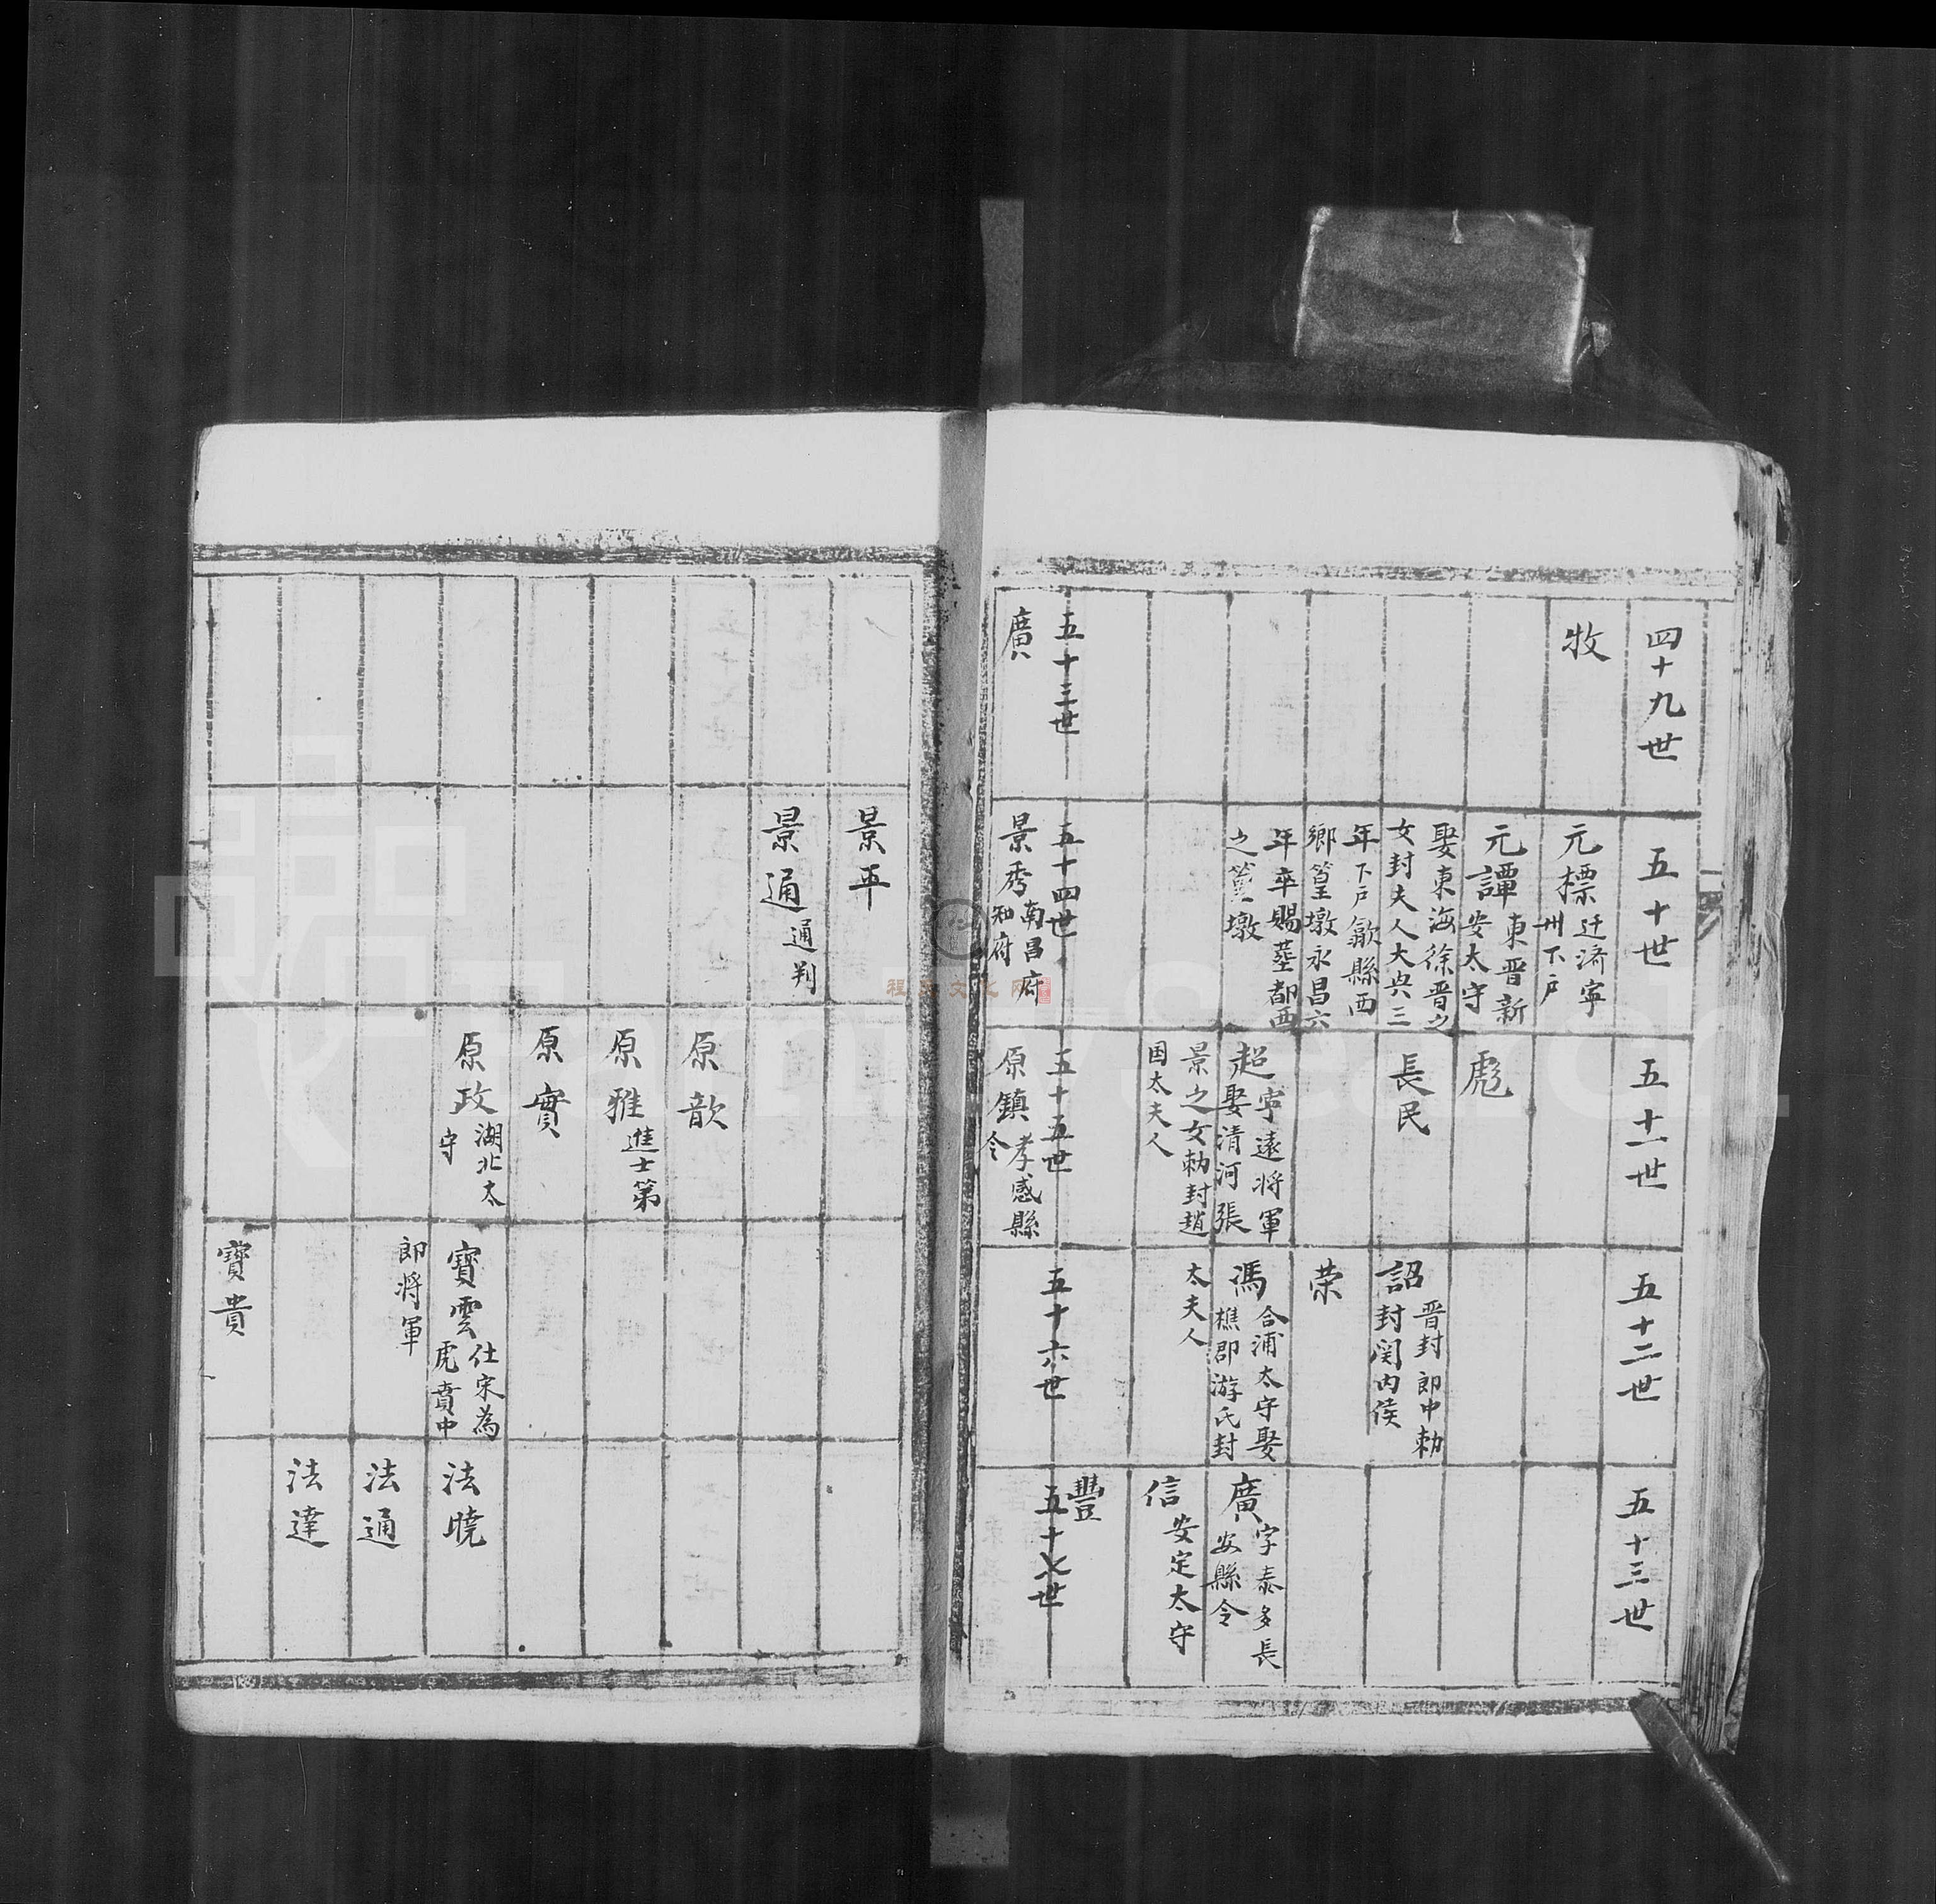 四十九世
五十世
五十一世
五十二世
五十三世
牧
元標 迁濟寧
州下戶
元譚 東晋新
安太守
娶東海徐晋之
女封夫人大興三
年下戶歙縣西
鄉篁墩永昌六
年卒賜塟都西
之篁墩
彪
長民
超 寧遠將軍
娶清河張
景之女勅封趙
国太夫人
詔 晋封郎中勅
封関内侯
荣
馮 合浦太守娶
樵郡游氏封
太夫人
廣 字泰多長
安縣令
信 安定太守
豐
五十三世
五十四世
五十五世
五十六世
五十七世
廣
景秀 南昌府
知府
原鎮 孝感縣
令
景平
景通 通判
原歆
原雅 進士第
原實
原政 湖北太
守
寶雲 仕宋為
虎賁中
郎將軍
寶貴
法曉
法通
法達
程氏文化网
FamilySearch